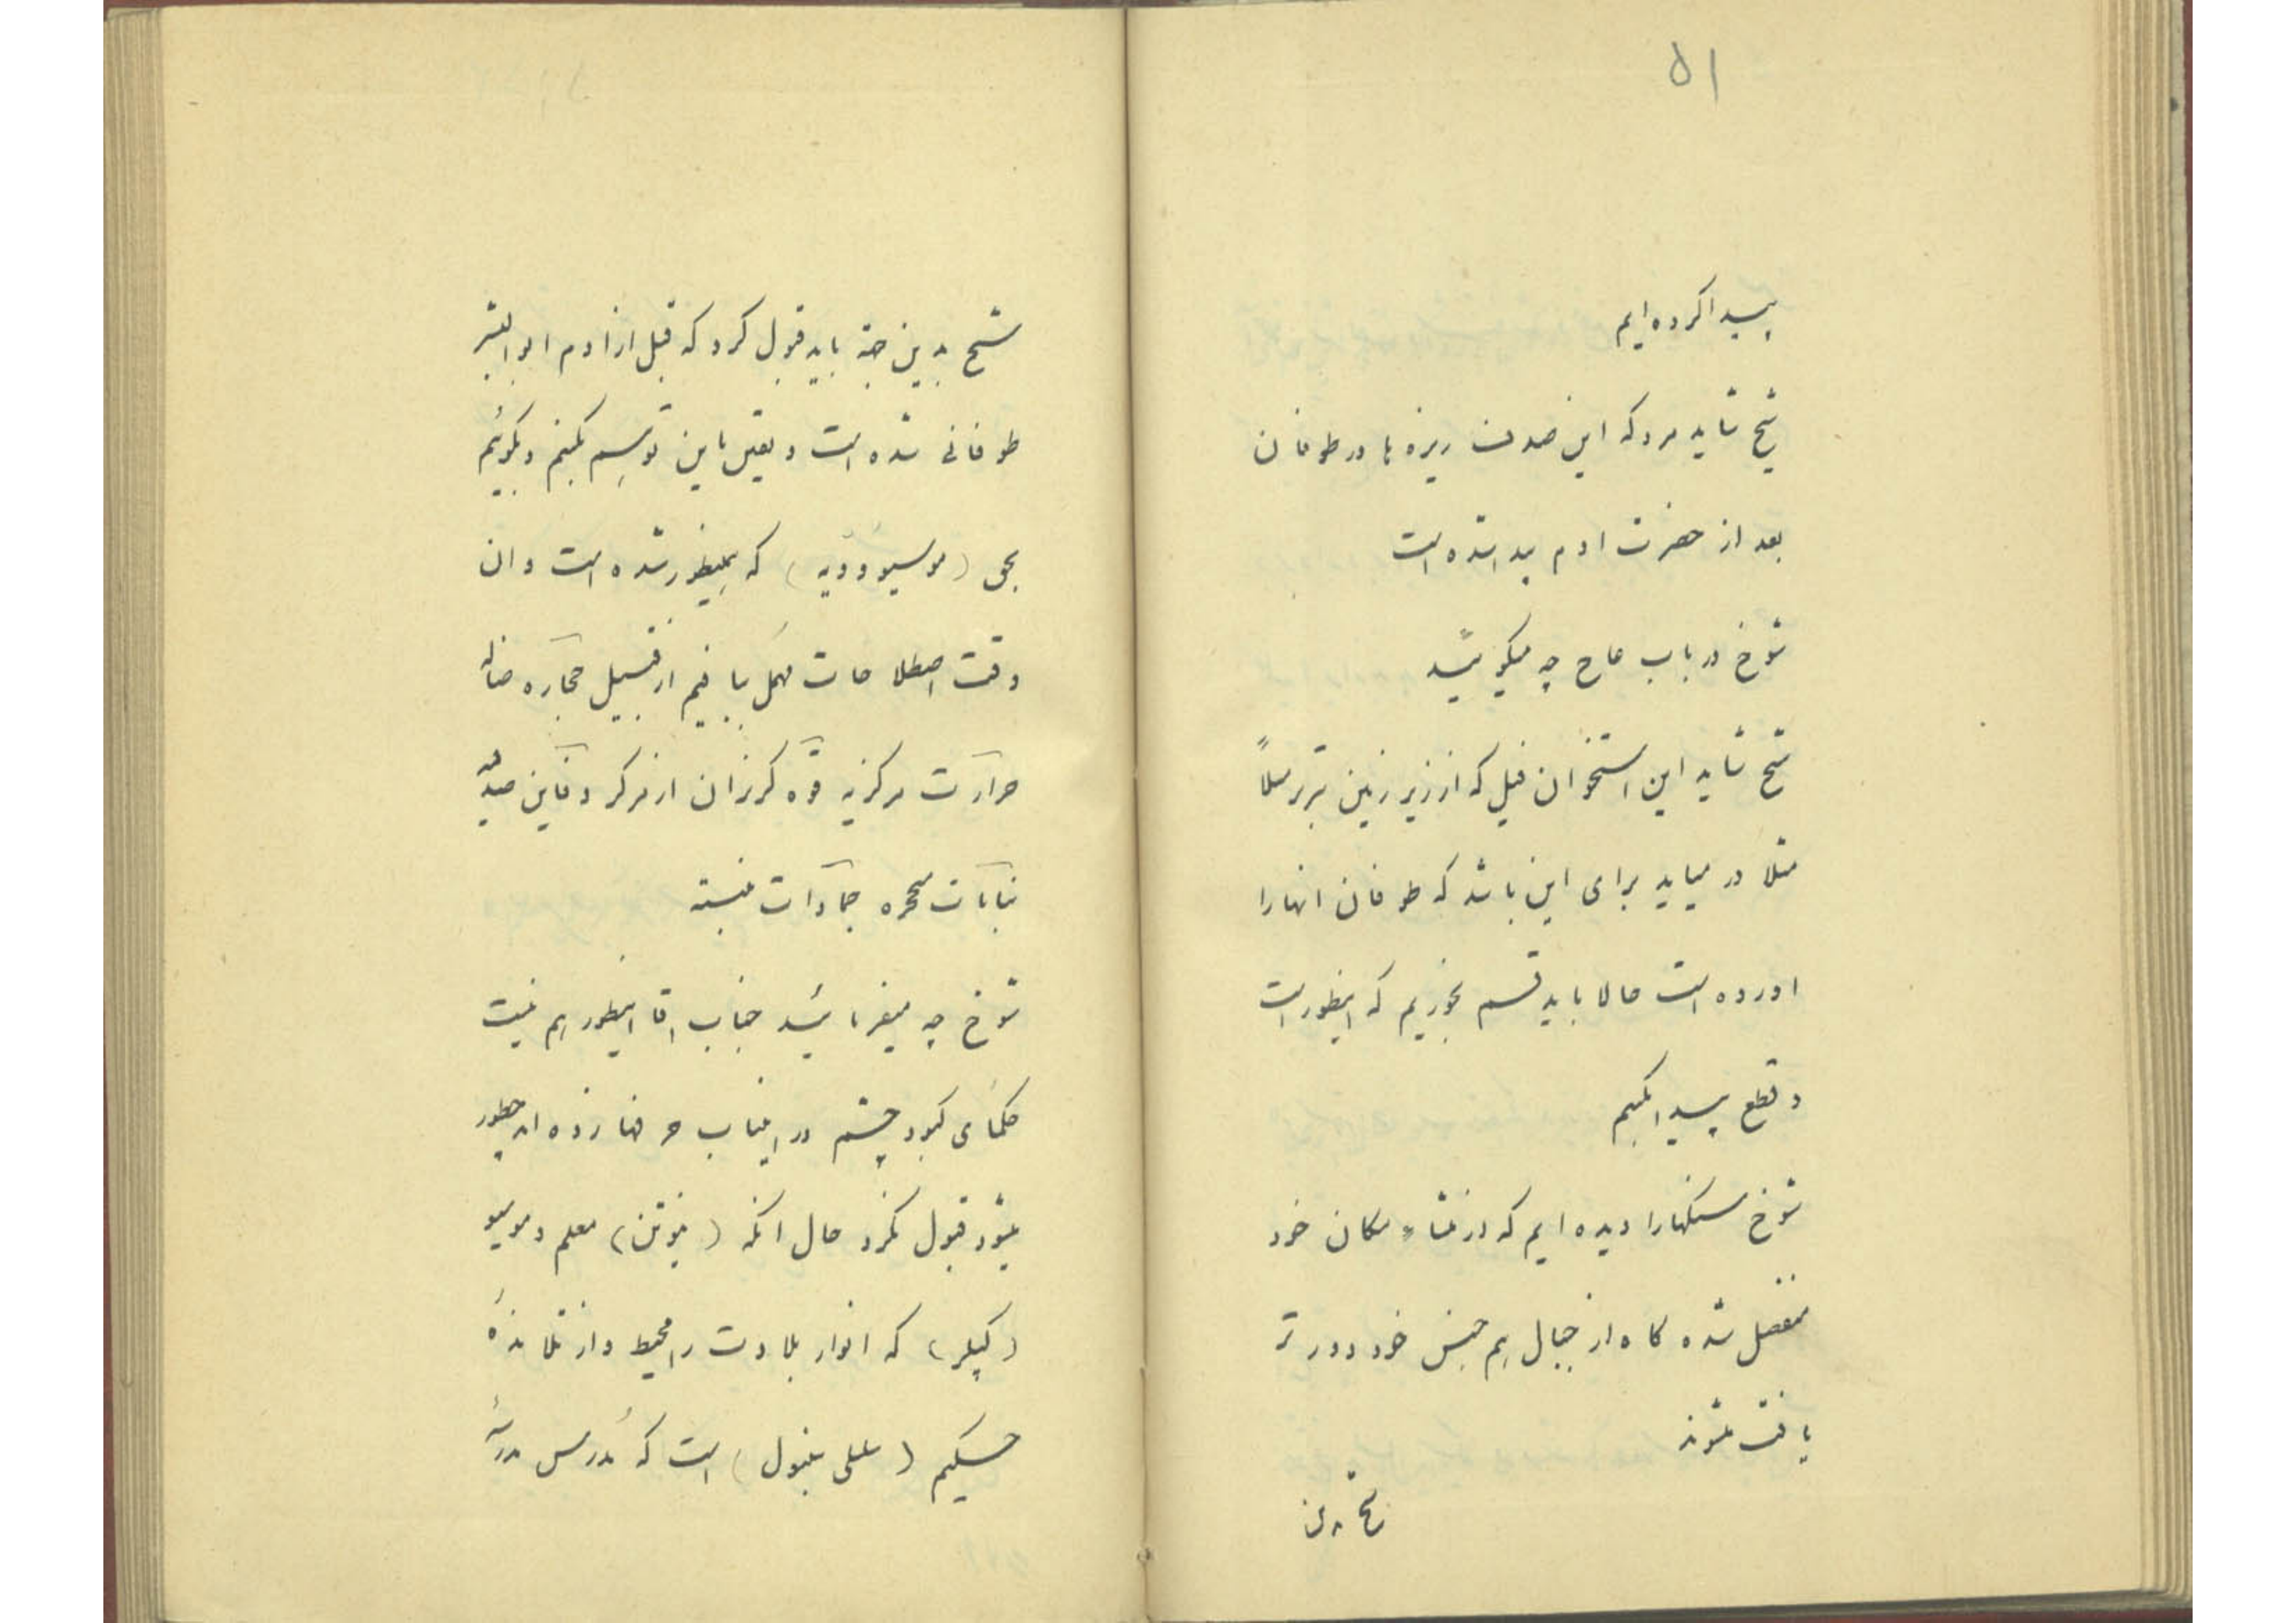 ۵۱
پیدا کرده ایم
شیخ شاید مرد که این صدف ریزه ها در طوفان
بعد از حضرت ادم پیدا شده است
شوخ در باب عاج چه میگوئید
شیخ شاید این استخوان فیل که از زیر زمین
مثلا در میاید برای این باشد که طوفان انها را
اورده است حالا باید قسم بخوریم که اینطور است
و قطع پیدا کنیم
شوخ سنگها را دیده ایم که از منشاء مکان خود
منفصل شده گاه از جبال هم جنس خود دورتر
یافت میشوند
شیخ بدین
شیخ بدین جهة باید قبول کرد که قبل از ادم ابوالبشر
طوفانی شده است و یقین باین توسیم بکنیم و بگوئیم
بحق (موسیو ) که همینطور شده است و ان
وقت اصطلاحات مهمل ببافیم از قبیل حجاره ضاله
حرارت مرکزیه قوه گریزان از مرکز
نباتات متحجره جمادات
شوخ چه میفرمائید جناب اقا اینطور هم نیست
حکمای کبود چشم در اینباب حرفها زده اند چطور
میشود قبول نکرد حال انکه (نیوتن) معلم و موسیو
(کپلر) که انوار بلادت را محیط و از تلامذهٔ
حکیم ( ) است که مدرس مدرسهٔ